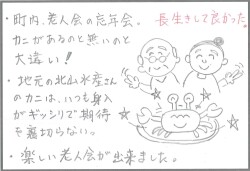 ・町内、老人会の忘年会。
カニがあるのと無いのと
大違い！
長生きして良かった。
・地元の北山水産さん
のカニは、いつも身入
がギッシリで期待
を裏切らない。
・楽しい老人会が出来ました。